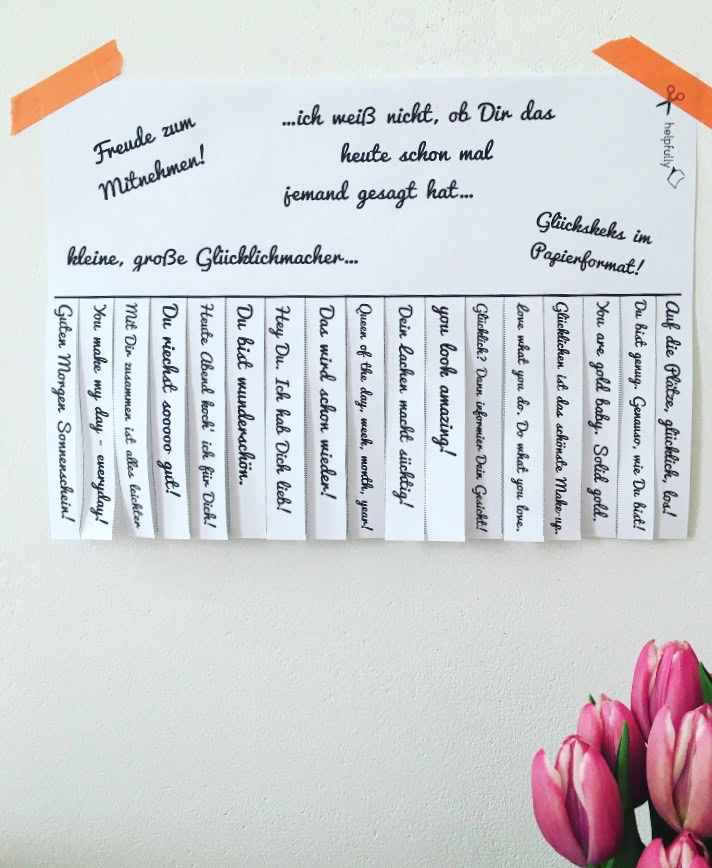 Freude zum
Mitnehmen!
...ich weiß nicht, ob Dir das
heute schon mal
jemand gesagt hat...
helpfully
Glückskeks im
Papierformat!
kleine, große Glücklichmacher...
Guten Morgen Sonnenschein!
You make my day - everyday!
Mit Dir zusammen ist alles leichter
Du riechst sooooo gut!
Heute Abend koch' ich für Dich!
Du bist wunderschön.
Hey Du. Ich hab Dich lieb!
Das wird schon wieder!
Queen of the day, week, month, year!
Dein Lachen macht süchtig!
you look amazing!
Glücklich? Dann informier Dein Gesicht!
Love what you do. Do what you love.
Glücklichsein ist das schönste Make-up.
You are gold baby. Solid gold.
Du bist genug. Genauso, wie Du bist!
Auf die Plätze, glücklich, los!